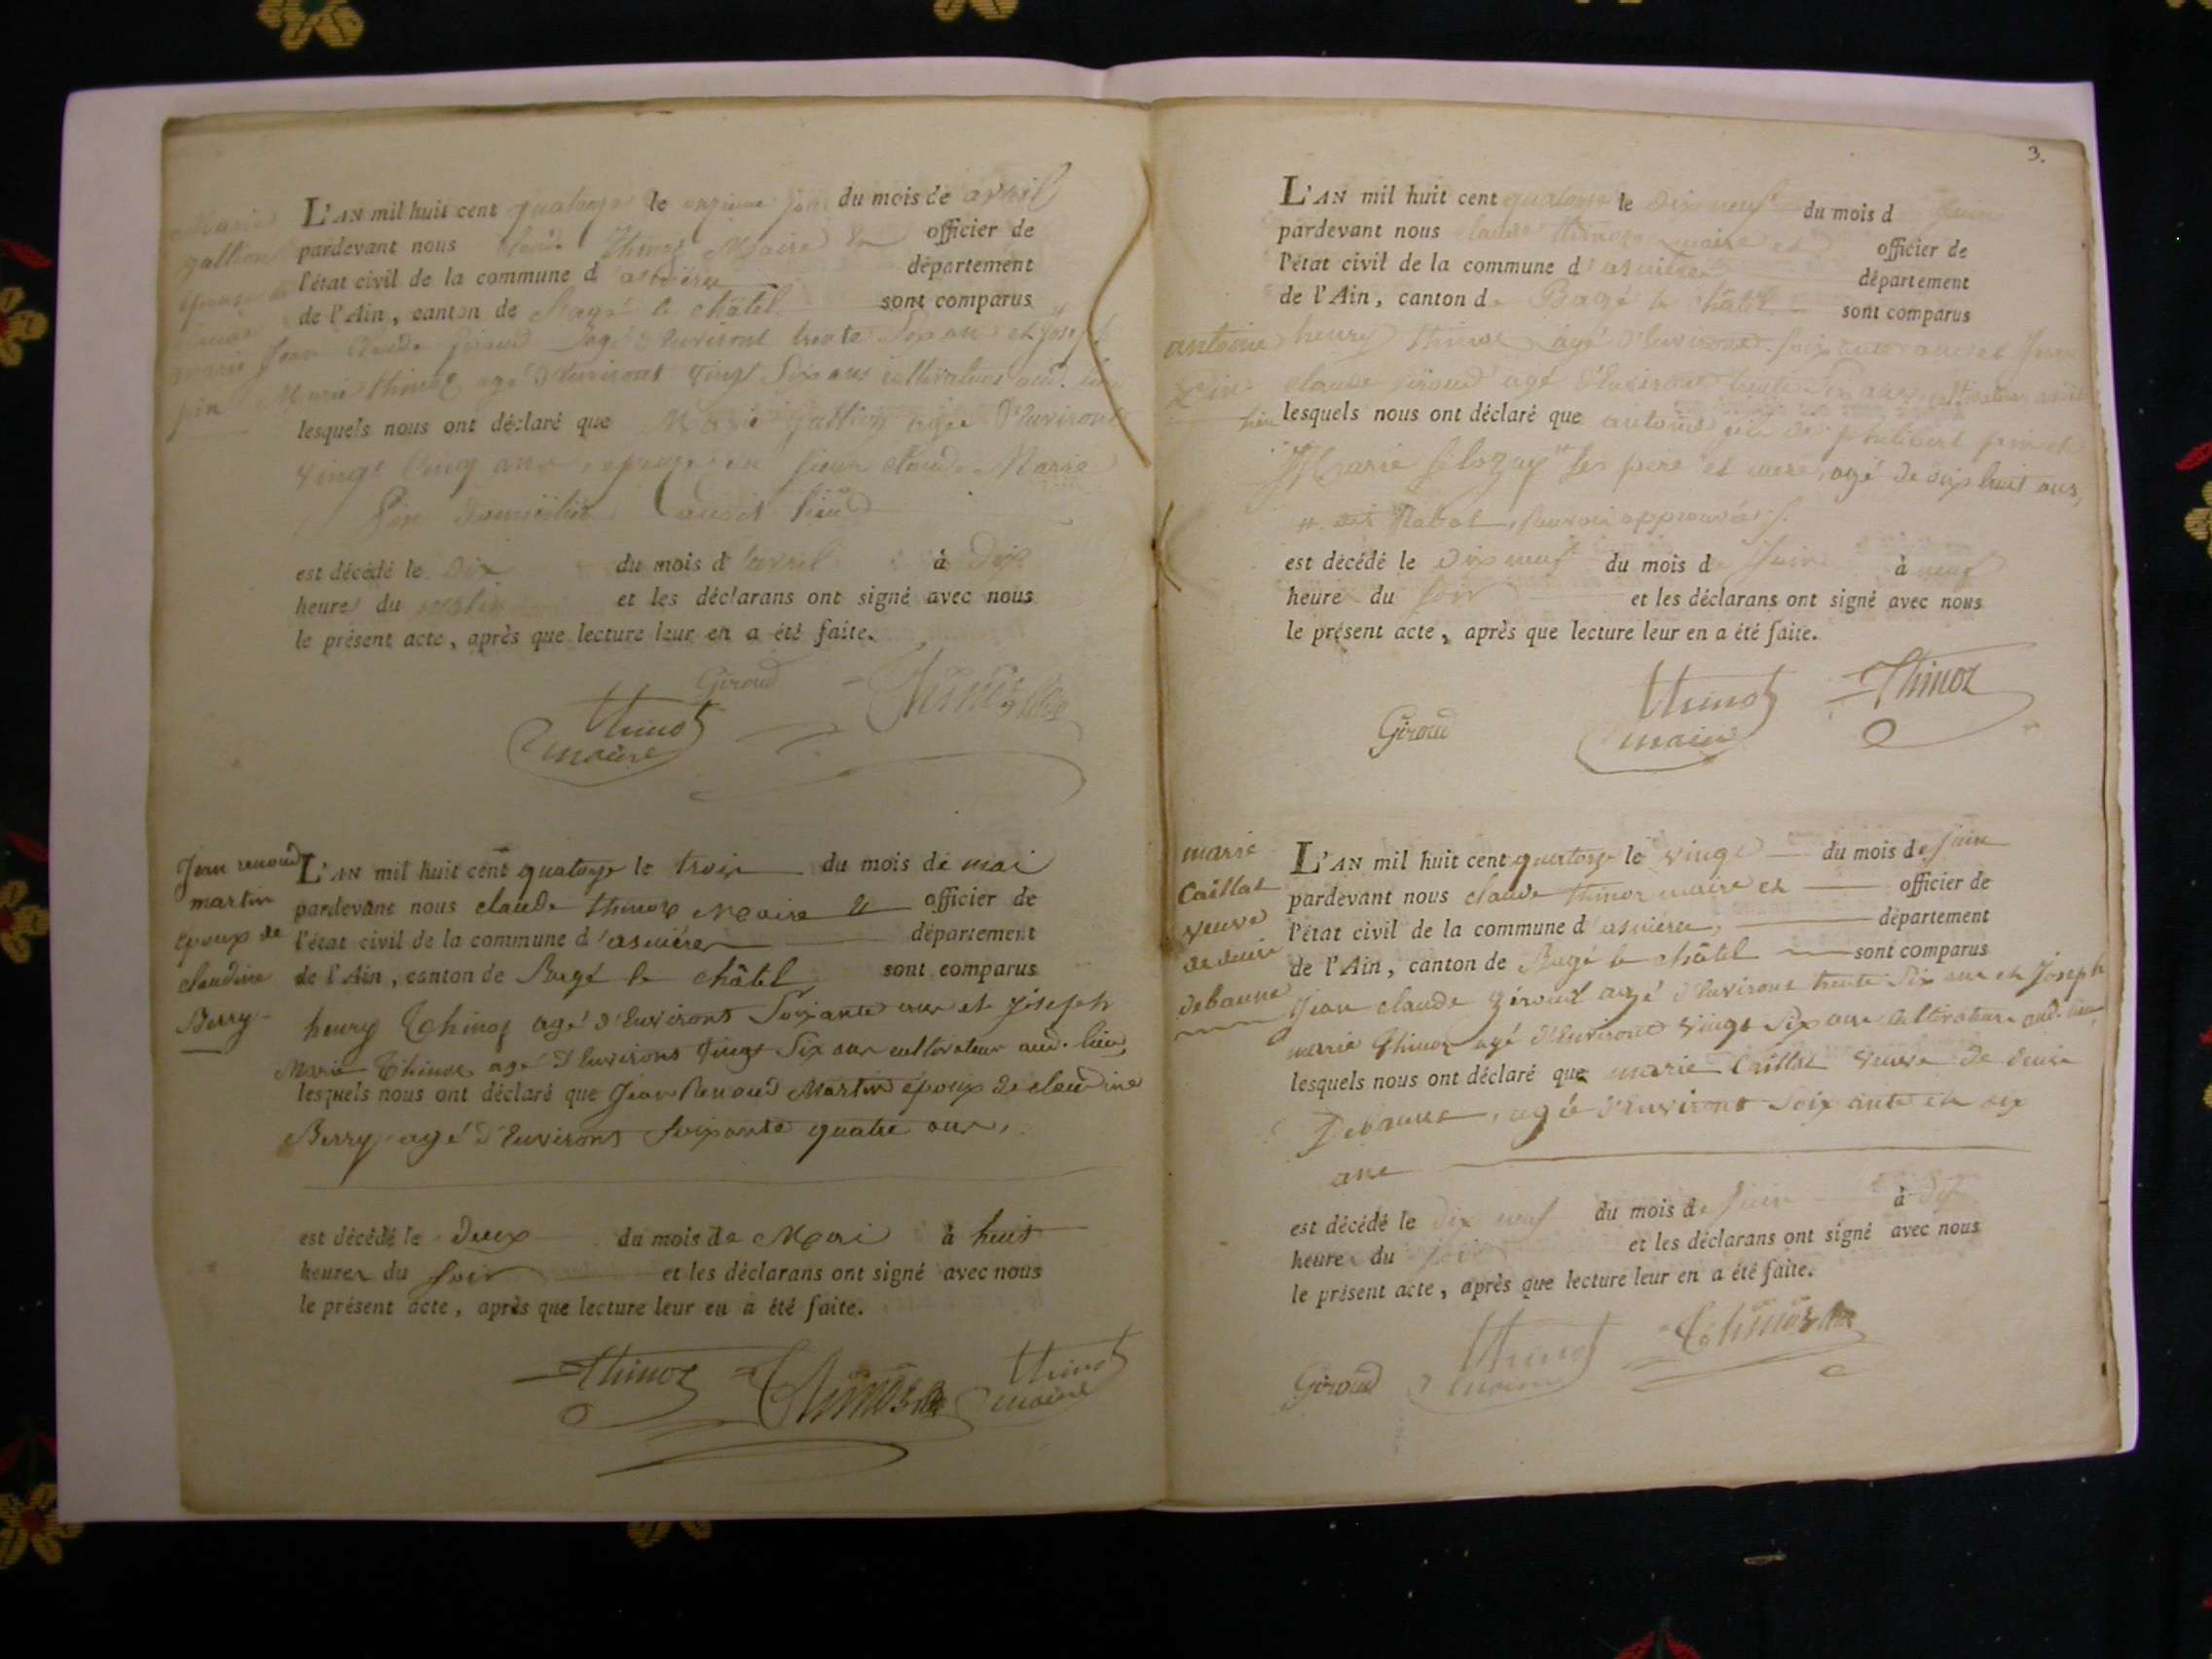 Marie
gallion
épouse de
claude
marie
pin
L'AN mil huit cent quatorze le onzieme jour du mois de avril
pardevant nous claude thinoz Maire et officier de
l'état civil de la commune d'asnières département
de l'Ain, canton de Bagé le châtel sont comparus
Jean Claude giroud agé d'Environs trente Six ans et Joseph
Marie thinoz agé d'Environs vingt Six ans cultivateurs aud. lieu
lesquels nous ont déclaré que Marie gallion agée d'Environs
vingt Cinq ans, épouse du sieur claude Marie
Pin domicilié audit lieu
est décédé le Dix du mois d'avril à Dix
heures du matin et les déclarans ont signé avec nous
le présent acte, après que lecture leur en a été faite.
Giroud
thinoz
maire
Thinoz
Jean renoud
martin
Epoux de
claudine
Berry
L'AN mil huit cent quatorze le trois du mois de mai
pardevant nous claude thinoz Maire et officier de
l'état civil de la commune d'asnières département
de l'Ain, canton de Bagé le châtel sont comparus
henry Thinoz agé d'Environs Soixante ans et Joseph
Marie Thinoz agé d'Environs vingt Six ans cultivateurs aud. lieu,
lesquels nous ont déclaré que Jean Renoud Martin époux de claudine
Berry agé d'Environs Soixante quatre ans,
est décédé le Deux du mois de Mai à huit
heures du Soir et les déclarans ont signé avec nous
le présent acte, après que lecture leur en a été faite.
Thinoz
Thinoz
thinoz
maire
3.
antoine
Pin
L'AN mil huit cent quatorze le Dix neuf du mois de Juin
pardevant nous claude thinoz maire et officier de
l'état civil de la commune d'asnières département
de l'Ain, canton de Bagé le châtel sont comparus
henry thinoz agé d'Environs soixante ans et Jean
claude giroud agé d'Environs trente Six ans cultivateurs aud.
lieu lesquels nous ont déclaré que antoine fils de philibert pin et
Marie ses père et mère, agé de dix huit ans,
approuvé
est décédé le Dix neuf du mois de Juin à neuf
heure du soir et les déclarans ont signé avec nous
le présent acte, après que lecture leur en a été faite.
Giroud
thinoz
maire
Thinoz
marie
Caillat
veuve
de denis
debaune
L'AN mil huit cent quatorze le vingt du mois de Juin
pardevant nous claude thinoz maire et officier de
l'état civil de la commune d'asnières, département
de l'Ain, canton de Bagé le châtel sont comparus
Jean claude giroud agé d'Environs trente Six ans et Joseph
marie thinoz agé d'Environs vingt Six ans cultivateurs aud. lieu,
lesquels nous ont déclaré que marie Caillat veuve de denis
Debaune, agée d'Environs Soixante et dix
ans
est décédé le Dix neuf du mois de Juin à
heures du soir et les déclarans ont signé avec nous
le présent acte, après que lecture leur en a été faite.
Giroud
thinoz
maire
Thinoz